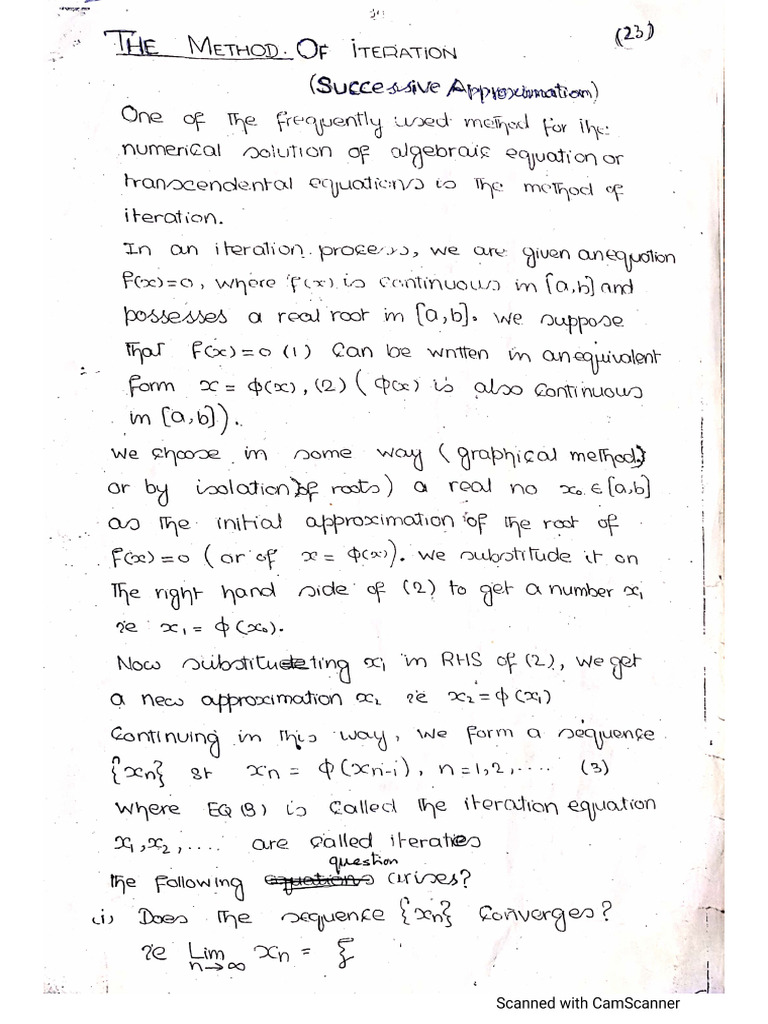 (23)
THE METHOD OF ITERATION
(Successive Approximation)
One of The frequently used method for the
numerical solution of algebraic equation or
transcendental equations is The method of
iteration.
In an iteration process, we are given an equation
f(x)=0, where f(x) is continuous in [a,b] and
possesses a real root in [a,b]. we suppose
That f(x)=0 (1) can be written in an equivalent
form x = ϕ(x), (2) ( ϕ(x) is also continuous
in [a,b]).
we choose in some way (graphical method)
or by isolation of roots) a real no x₀ ∈ [a,b]
as The initial approximation of the root of
f(x)=0 (or of x = ϕ(x)). we substitute it on
The right hand side of (2) to get a number x₁
ie x₁ = ϕ(x₀).
Now substituting x₁ in RHS of (2), we get
a new approximation x₂ ie x₂ = ϕ(x₁)
Continuing in this way, we form a sequence
{xn} st xn = ϕ(xn-1), n=1,2,.... (3)
where EQ (3) is called the iteration equation
x₁,x₂,.... are called iterates
The following question arises?
(i) Does The sequence {xn} Converges?
ie Lim n→∞ xn = ξ
Scanned with CamScanner